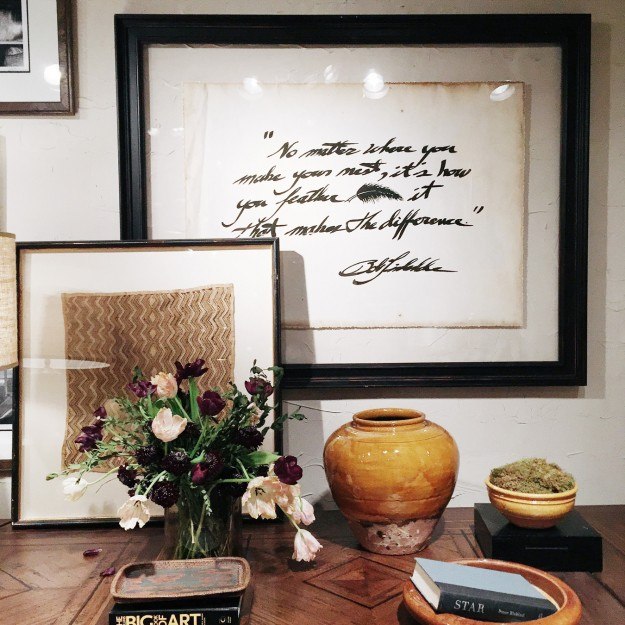 "No matter where you
make your nest, it's how
you feather it
that makes the difference."
THE BIG BOOK OF ART
STAR